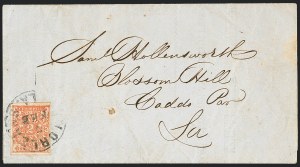 Saml Hollensworth
Blossom Hill
Caddo Par
La